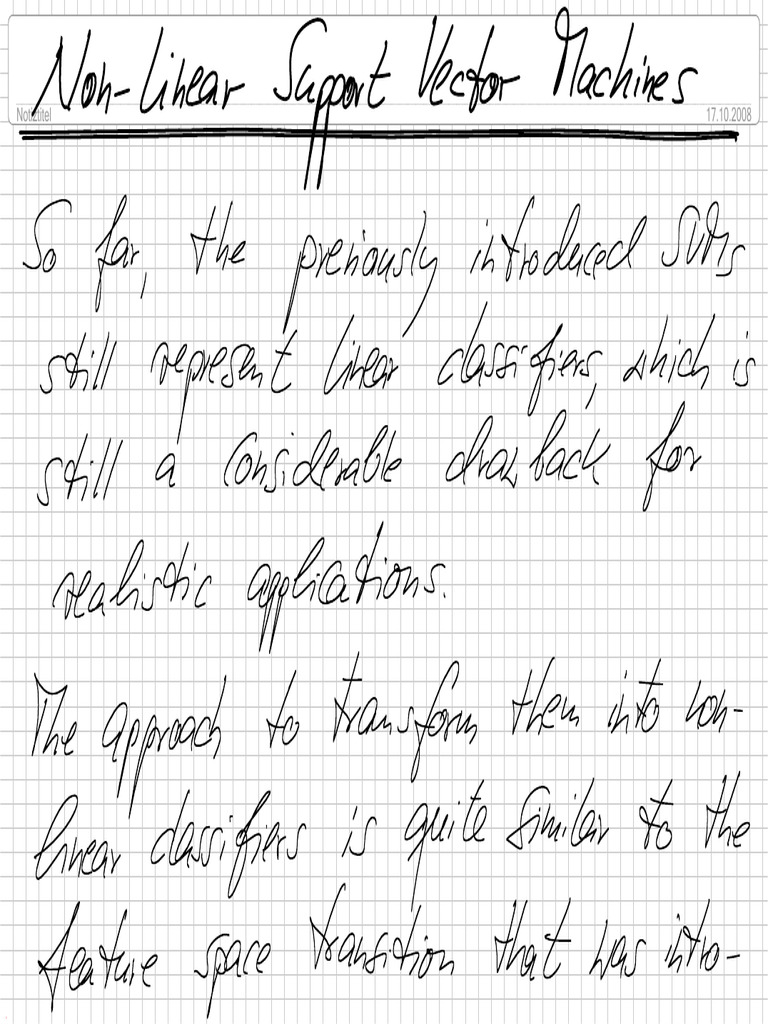 Non-linear Support Vector Machines
Notiztitel
17.10.2008
So far, the previously introduced SVMs
still represent linear classifiers, which is
still a considerable drawback for
realistic applications.
The approach to transform them into non-
linear classifiers is quite similar to the
feature space transition that was intro-